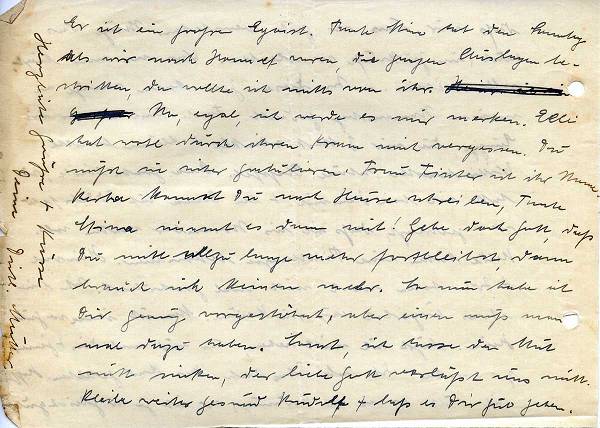 Er ist ein großer Egoist. Tante Mina hat den Sonntag
als wir nach Honnef waren, die ganzen Auslagen be-
stritten, da wollte ich nichts von ihr.
Na, egal, ich werde es mir merken. Elli
hat wohl durch ihren Kram mit vergessen. Du
mußt ihr gratulieren! Frau ist ihr Name.
kannst Du nach Hause schreiben, Tante
Mina nimmt es dann mit! Gebe doch Gott, daß
Du nicht allzu lange mehr fortbleibst, dann
brauch ich keinen mehr. So nun habe ich
Dir genug vorgestöhnt, aber einen muß man
mal dazu haben. Sonst, ich lasse den Mut
nicht sinken, der liebe Gott verläßt uns nicht.
Bleibe weiter gesund Rudolf + laß es Dir gut gehen.
Herzliche Grüße + Küsse
Deine Mutter